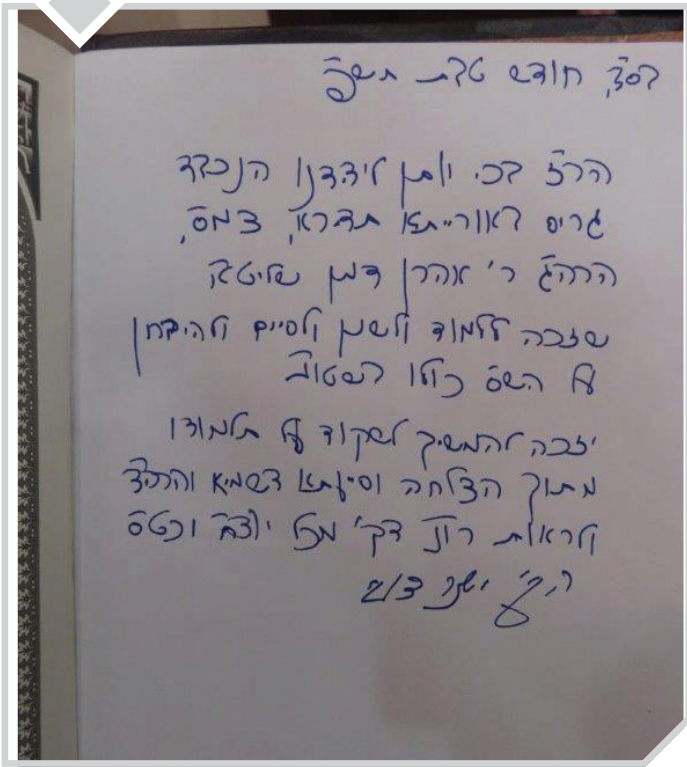 בס"ד, חודש טבת תש"פ
הרה"ג בכי יותן לידידנו הנכבד
גריס באורייתא תדירא, צמ"ס,
הרה"ג ר' אהרן דמן שליט"א
שזכה ללמוד ולשנן ולסיים ולהיבחן
על הש"ס כולו בשטו"ב
יזכה להמשיך לשקוד על תלמודו
מתוך הצלחה וסיעתא דשמיא והרחבה
ולראות רו"נ דק' מכל יוצ"ח וכט"ס
הק'